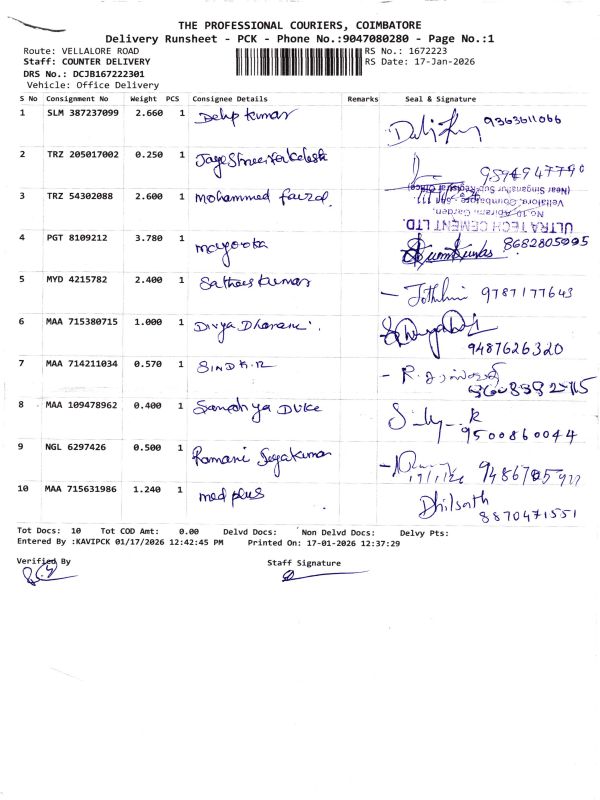 THE PROFESSIONAL COURIERS, COIMBATORE
Delivery Runsheet - PCK - Phone No.:9047080280 - Page No.:1
Route: VELLALORE ROAD RS No.: 1672223
Staff: COUNTER DELIVERY RS Date: 17-Jan-2026
DRS No.: DCJB167222301
Vehicle: Office Delivery
S No Consignment No Weight PCS Consignee Details Remarks Seal & Signature
1 SLM 387237099 2.660 1 Delip kumar 9363611066
2 TRZ 205017002 0.250 1 9594947790
3 TRZ 54302088 2.600 1 Mohammed faizal.
ULTRA TECH CEMENT LTD.
4 PGT 8109212 3.780 1 mayooka 8682805095
5 MYD 4215782 2.400 1 Sathees kumar - Jothihni 9787177643
6 MAA 715380715 1.000 1 Divya Dharani 9487626320
7 MAA 714211034 0.570 1 - R.
8 MAA 109478962 0.400 1 Duke 9500860044
9 NGL 6297426 0.500 1 Ramani Jeyakumar 17/1/26
10 MAA 715631986 1.240 1 med plus Dhilsath
8870471551
Tot Docs: 10 Tot COD Amt: 0.00 Delvd Docs: Non Delvd Docs: Delvy Pts:
Entered By :KAVIPCK 01/17/2026 12:42:45 PM Printed On: 17-01-2026 12:37:29
Verified By Staff Signature